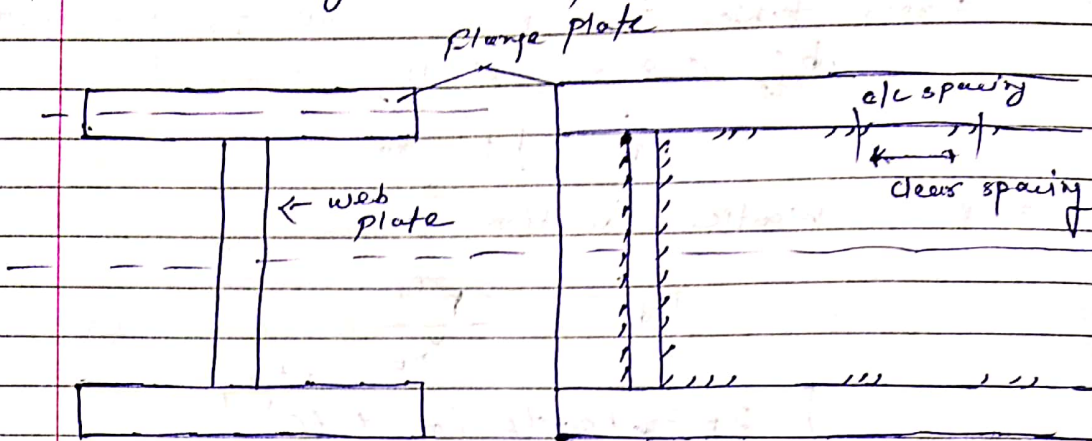 flange plate
c/c spacing
clear spacing
← web
plate